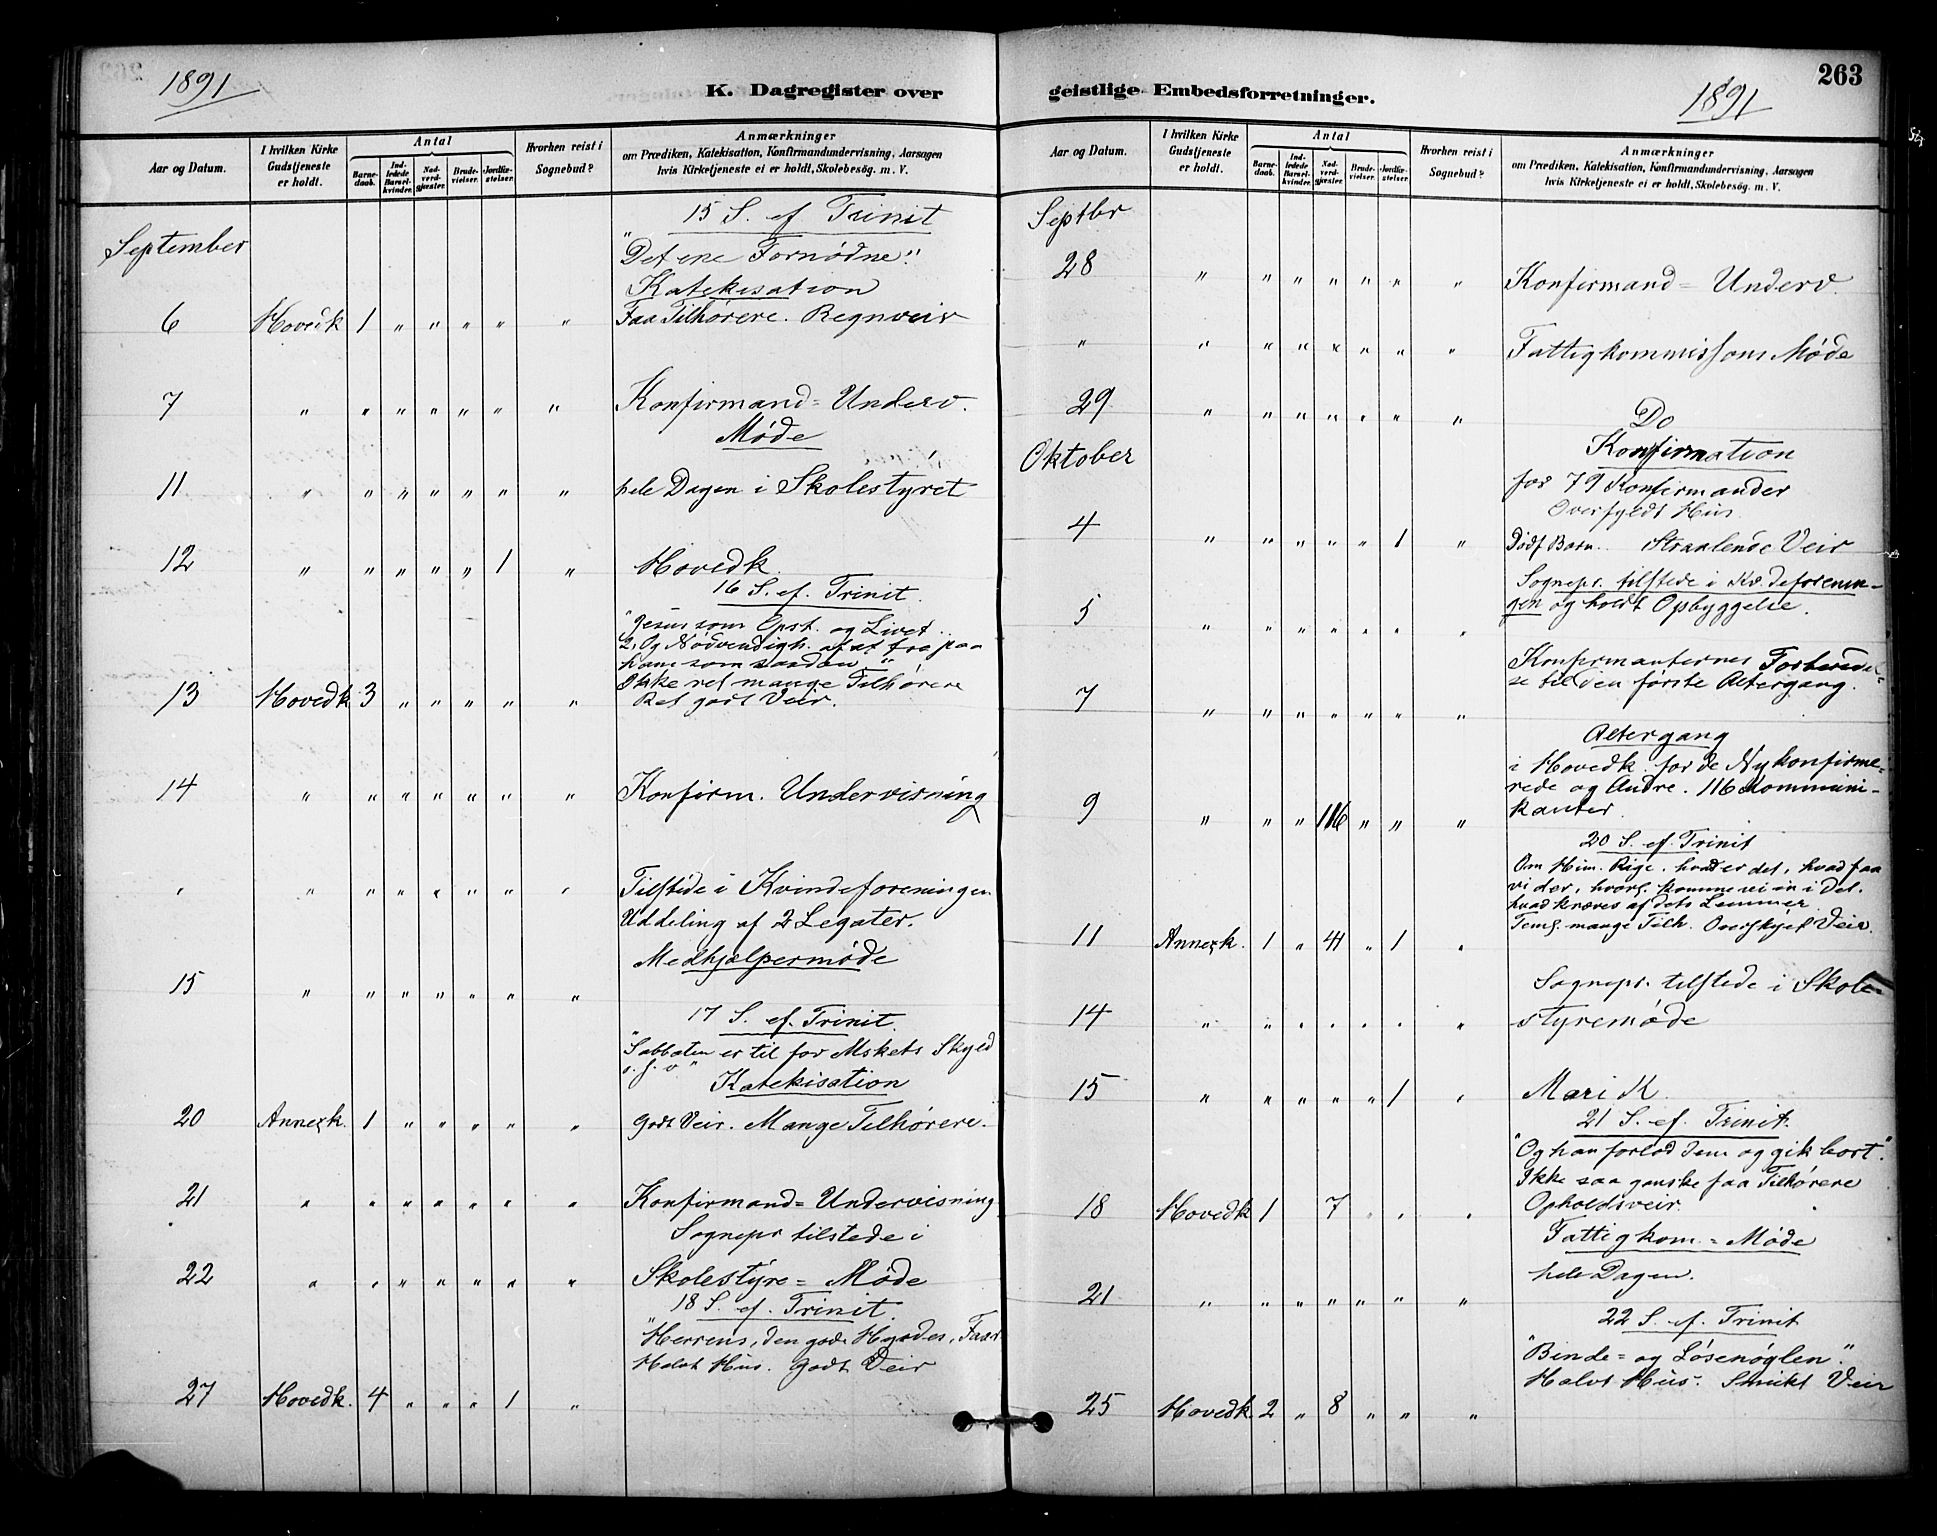 1891
K. Dagregister over
Aar og Datum.
I hvilken Kirke Gudstjeneste er holdt.
Antal
Barnedaab.
Indledede Barselkvinder.
Nadverdgjæster.
Brudevielser.
Jordfæstelser.
Hvorhen reist i Sognebud?
Anmærkninger
om Prædiken, Katekisation, Konfirmandundervisning, Aarsagen
hvis Kirketjeneste ei er holdt, Skolebesøg. m. V.
15 S. ef Trinit
September
"Det ene Fornødne".
Katekisation
6 Hovedk 1 " " " " " Faa Tilhørere. Regnveir
7 " " " " " " " Konfirmand= Underv.
Møde
11 " " " " " " " hele Dagen i Skolestyret
12 " " " " " 1 " Hovedk.
16 S. ef. Trinit.
"Jesus som Opst. og Livet
2, Og Nødvendigh. af at tro paa
ham som saadan"
Ikke ret mange Tilhørere
13 Hovedk 3 " " " " " Ret godt Veir.
14 " " " " " " " Konfirm. Undervisning
" " " " " " " " Tilstede i Kvindeforeningen
Uddeling af 2 Legater.
Medhjælpermøde
15 " " " " " " "
17 S. ef. Trinit.
"Sabbaten er til for Mskets Skyld
o. s. v"
Katekisation
20 Annexk. 1 " " " " " Godt Veir. Mange Tilhørere.
21 " " " " " " " Konfirmand= Undervisning
Sognepr tilstede i
22 " " " " " " " Skolestyre= Møde
18 S. ef. Trinit.
"Herren, den gode Hyrdes,
Halvt Hus. Godt Veir
27 Hovedk. 4 " " " 1 "
263
geistlige Embedsforretninger.
1891
Aar og Datum.
I hvilken Kirke Gudstjeneste er holdt.
Antal
Barnedaab.
Indledede Barselkvinder.
Nadverdgjæster.
Brudevielser.
Jordfæstelser.
Hvorhen reist i Sognebud?
Anmærkninger
om Prædiken, Katekisation, Konfirmandundervisning, Aarsagen
hvis Kirketjeneste ei er holdt, Skolebesøg. m. V.
Septbr
28 " " " " " " " Konfirmand= Underv.
" " " " " " " " Fattigkommissons Møde
29 " " " " " " " Do
Oktober
Konfirmation
for 79 Konfirmander
Overfyldt Hus
4 " " " " " 1 " Dødf Barn. Straalende Veir
Sognepr. tilstede i Kv.deforenin-
5 " " " " " " " gen og holdt Opbyggelse.
Konfirmanternes Forberedel-
7 " " " " " " " se til den første Altergang.
Altergang
i Hovedk. for de Nykonfirme-
rede og Andre. 116 Kommuni-
9 " " " 116 " " " kanter
20 S. ef. Trinit
Om Him. Rige. hvad er det, hvad faa
vi der, hvorl. komme vi ind i Det.
hvad kræves af dets Lemmer
11 Annexk. 1 " 41 " 1 " Teml. mange Tilh. Overskyet Veir.
Sognepr. tilstede i Skole-
14 " " " " " " " styremøde
15 " " " " " 1 " Mari K.
21 S. ef. Trinit.
"Og han forlod dem og gik bort".
Ikke saa ganske faa Tilhørere
18 Hovedk 1 " 7 " " " Opholdsveir.
Fattigkom.= Møde
hele Dagen.
21 " " " " " " "
22 S. ef. Trinit
"Binde= og Løsenøglen".
Halvt Hus. Smukt Veir
25 Hovedk. 2 " 8 " " "